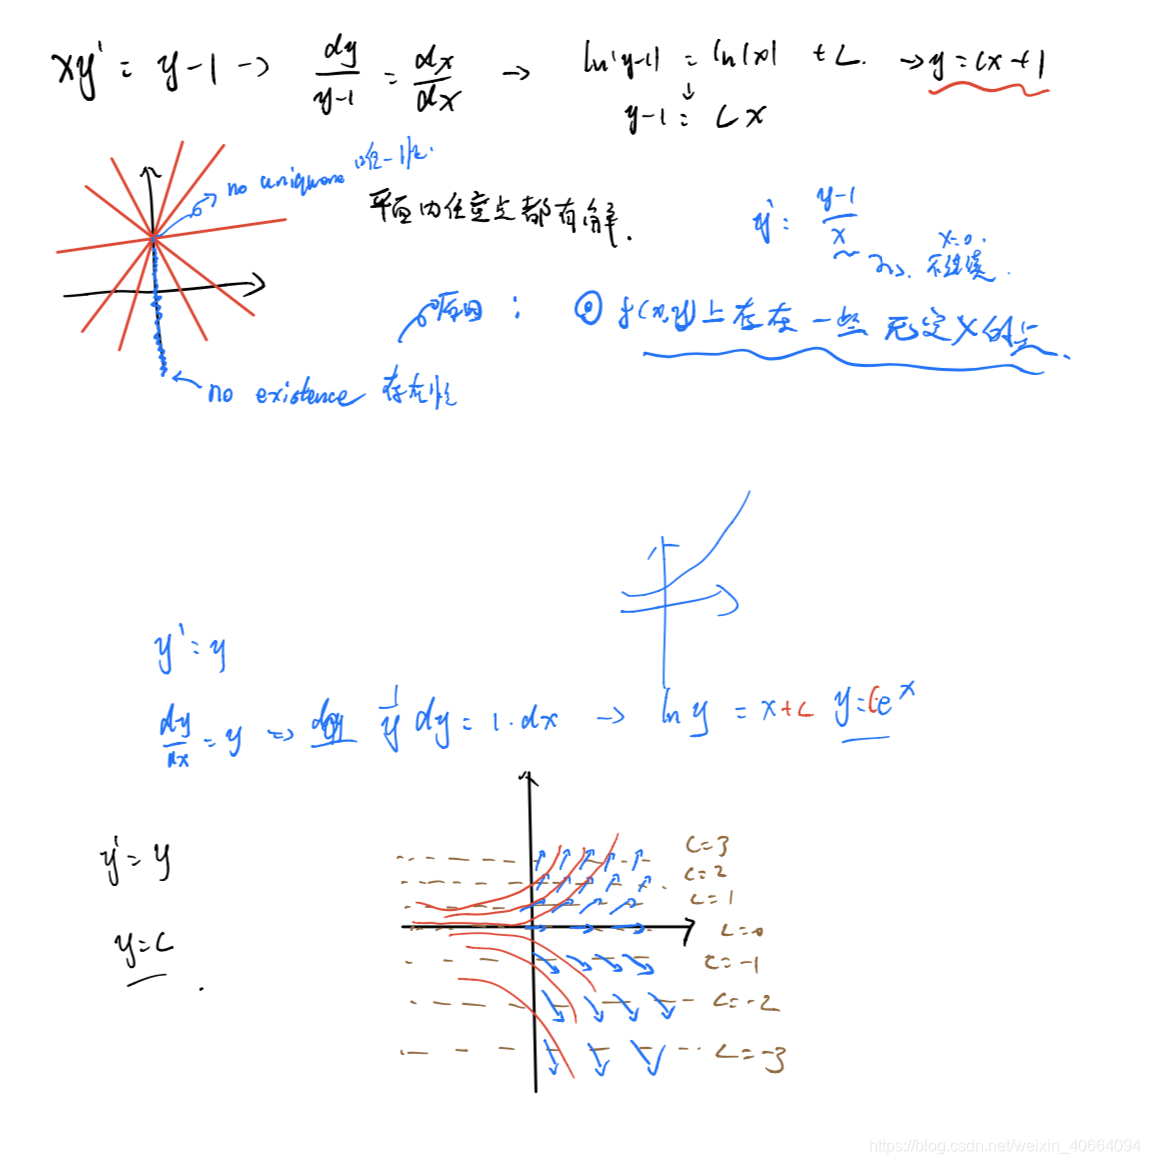 xy' = y-1 → dy/y-1 = dx/dx → ln|y-1| = ln|x| + C. → y = cx+1
↓
y-1 = Cx
no 唯一性.
平面内任意点都有解.
y' = y-1/x
x=0.
不连续.
原因: ① f(x,y)上存在一些无定义的点.
no existence 存在性
y' = y
dy/dx = y ⇒ 1/y dy = 1·dx → ln y = x+C y=Ce^x
y' = y
y=C
C=3
C=2
C=1
C=0
C=-1
C=-2
C=-3
https://blog.csdn.net/weixin_40664094